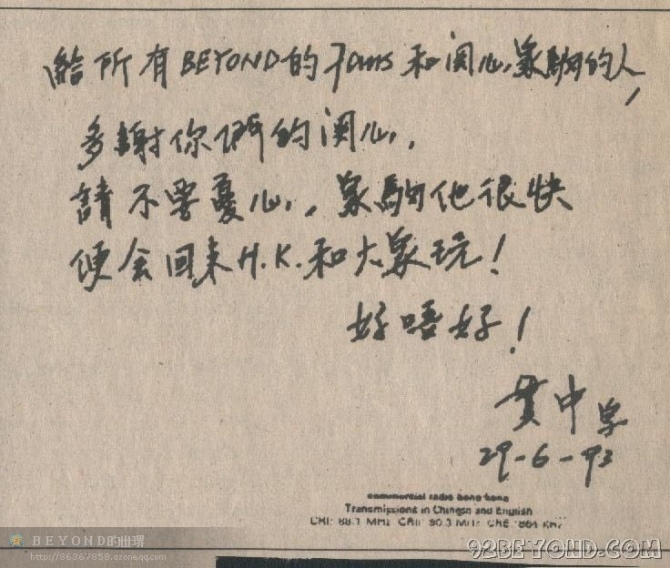 給所有BEYOND的Fans和関心家駒的人,
多謝你們的関心,
請不要憂心,家駒他很快
便会回来H.K.和大家玩!
好唔好!
黄中字
29-6-93
commercial radio hong kong
Transmissions in Chinese and English
CRI: 88.1 MHz CRII: 90.3 MHz CRE: 864 KHz
BEYOND的世界
http://86367858.qzone.qq.com
92BEYOND.COM